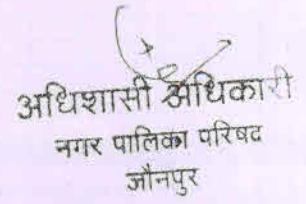 अधिशासी अधिकारी
नगर पालिका परिषद
जौनपुर